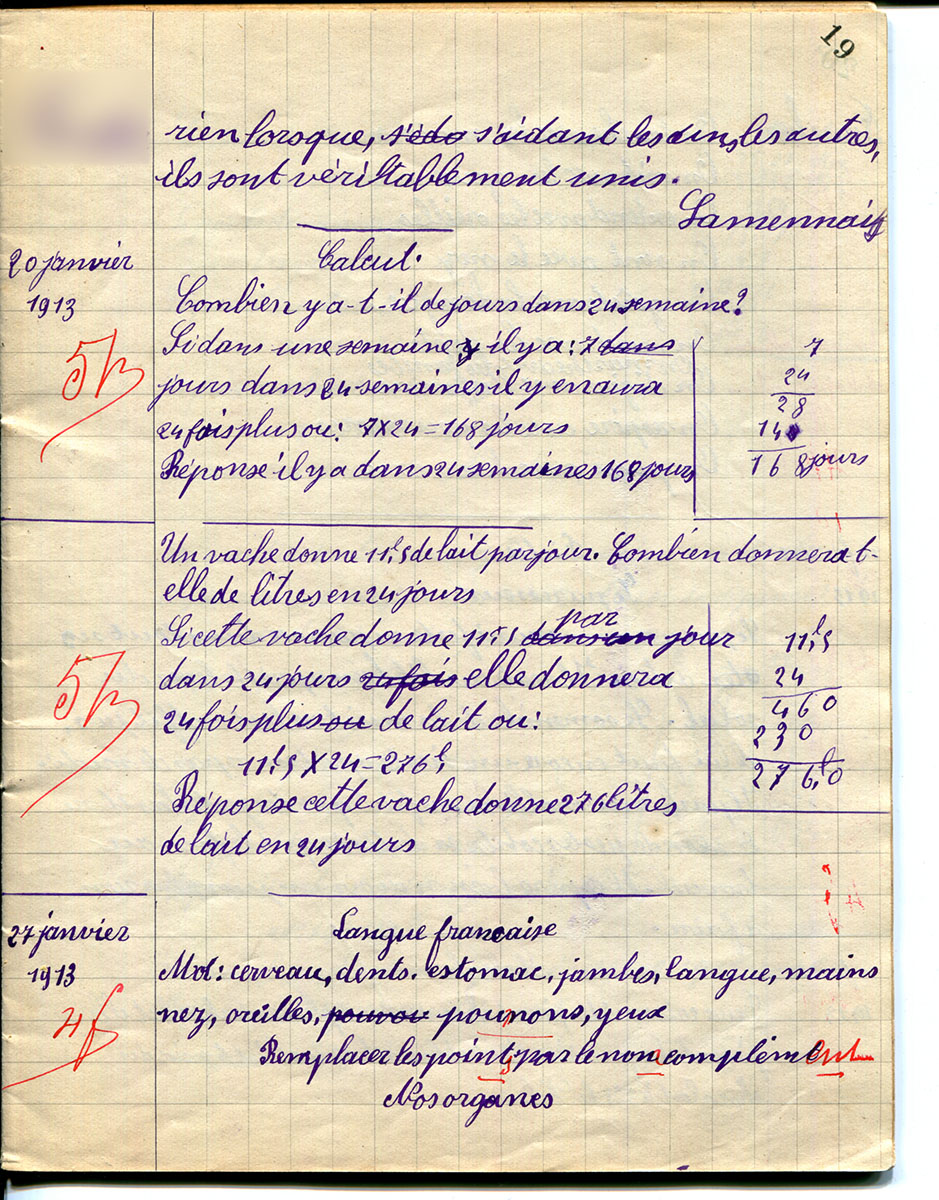 19
rien lorsque, s'édo s'aidant les uns, les autres,
ils sont véritablement unis.
Lamennais
20 janvier
1913
Calcul.
Combien y a-t-il de jours dans 24 semaine?
Si dans une semaine y il y a: 7 dans
jours dans 24 semaines il y en aura
24 fois plus ou: 7X24=168 jours
Réponse il y a dans 24 semaines 168 jours
7
24
28
14
168 jours
Un vache donne 11l,5 de lait par jour. Combien donnera t-
elle de litres en 24 jours
Si cette vache donne 11l,5 dans un par jour
dans 24 jours 24 fois elle donnera
24 fois plus ou de lait ou:
11l,5 X 24=276l,
Réponse cette vache donne 276 litres
de lait en 24 jours
11l,5
24
460
230
276,l0
27 janvier
1913
Langue francaise
Mot: cerveau, dents. estomac, jambes, langue, mains
nez, oreilles, poumons, yeux
Remplacer les point par le nom complément
Nos organes